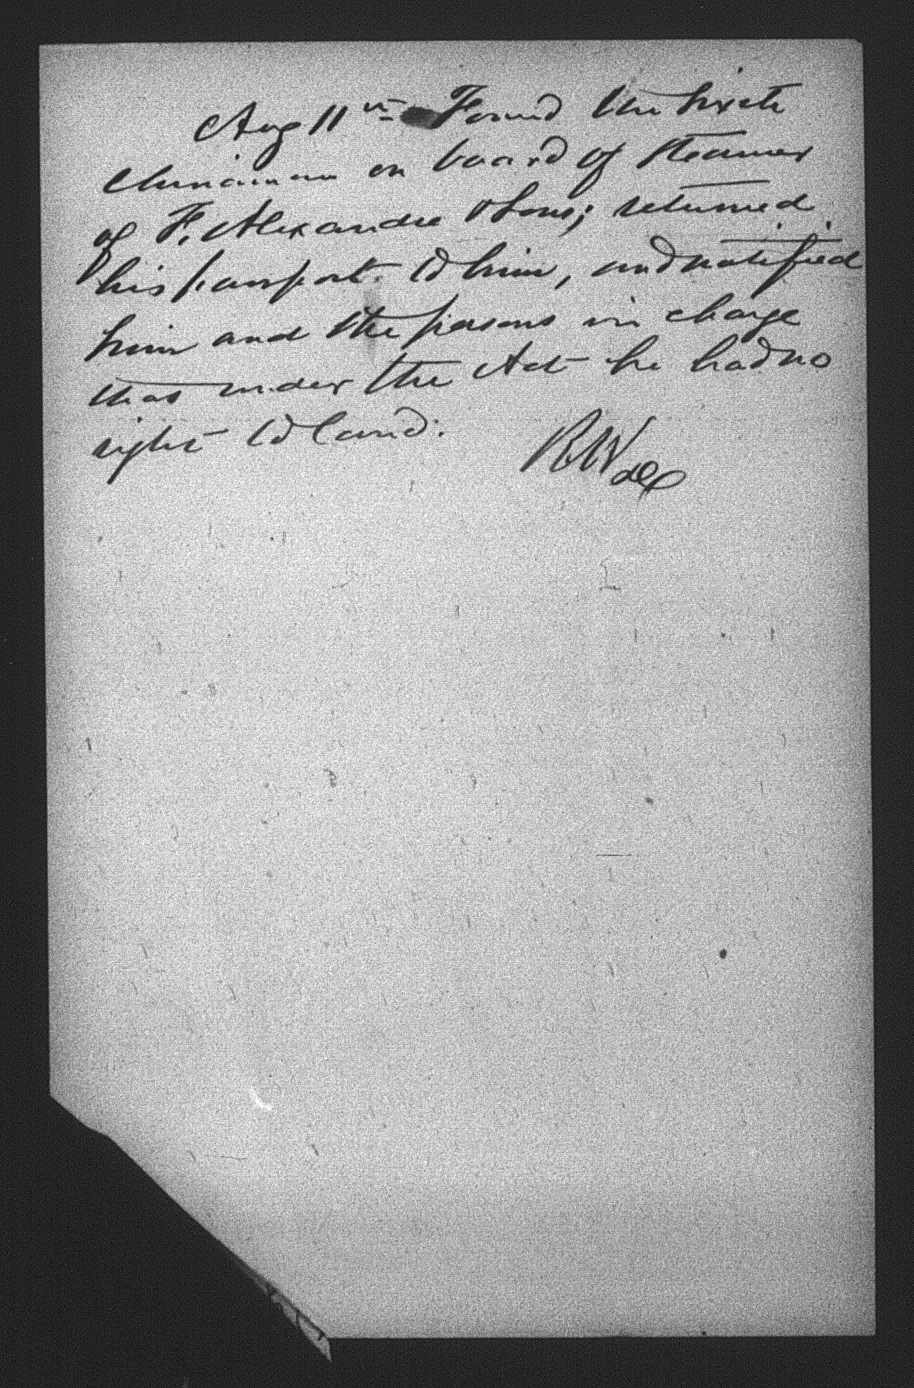 Aug 11th Found the sixth
Chinaman on board of steamer
of F. Alexandre & Sons; returned
his passport to him, and notified
him and the persons in charge
that under the Act he had no
right to land.